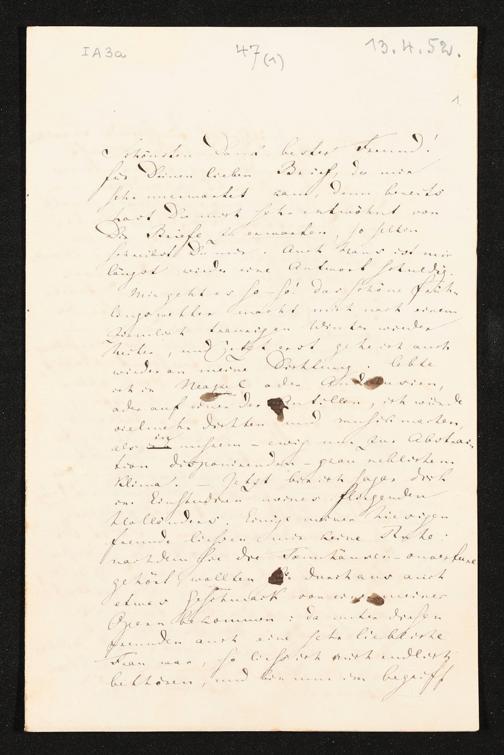 IA3a
47
(1)
13.4.52.
1.
Schönsten Dank bester Freund!
für Deinen lieben Brief, der mir
sehr unerwartet kam, denn bereits
hast Du mich sehr entwöhnt von
Dir Briefe zu erwarten, so selten
schreibst Du mir. Auch Franz ist mir
längst wieder eine Antwort schuldig.
Mir geht es so-so! das schöne Früh-
lingswetter macht mich nach einem
ziemlich traurigen Winter wieder
heiter, und jetzt erst gehe ich auch
wieder an meine Dichtung. lebte
ich in Neapel oder Andalusien,
oder auf einer der Antillen, ich würde
vielmehr dichten und musik machen,
als in unsrem – ewig nur zur Abstrac-
tion disponirenden – grau neblichem
Klima. – Jetzt bin ich sogar dick
im Einstudiren meines fliegenden
Holländers. Einige meiner hiesigen
freunde liessen mir keine Ruhe:
nachdem sie die Tannhäuser-ouvertüre
gehört wollten sie durchaus auch
etwas Geschmack von einer meiner
Opern bekommen: da unter diesen
freunden auch eine sehr liebliche
Frau war, so liess ich mich endlich
bethören, und bin nun im begriff